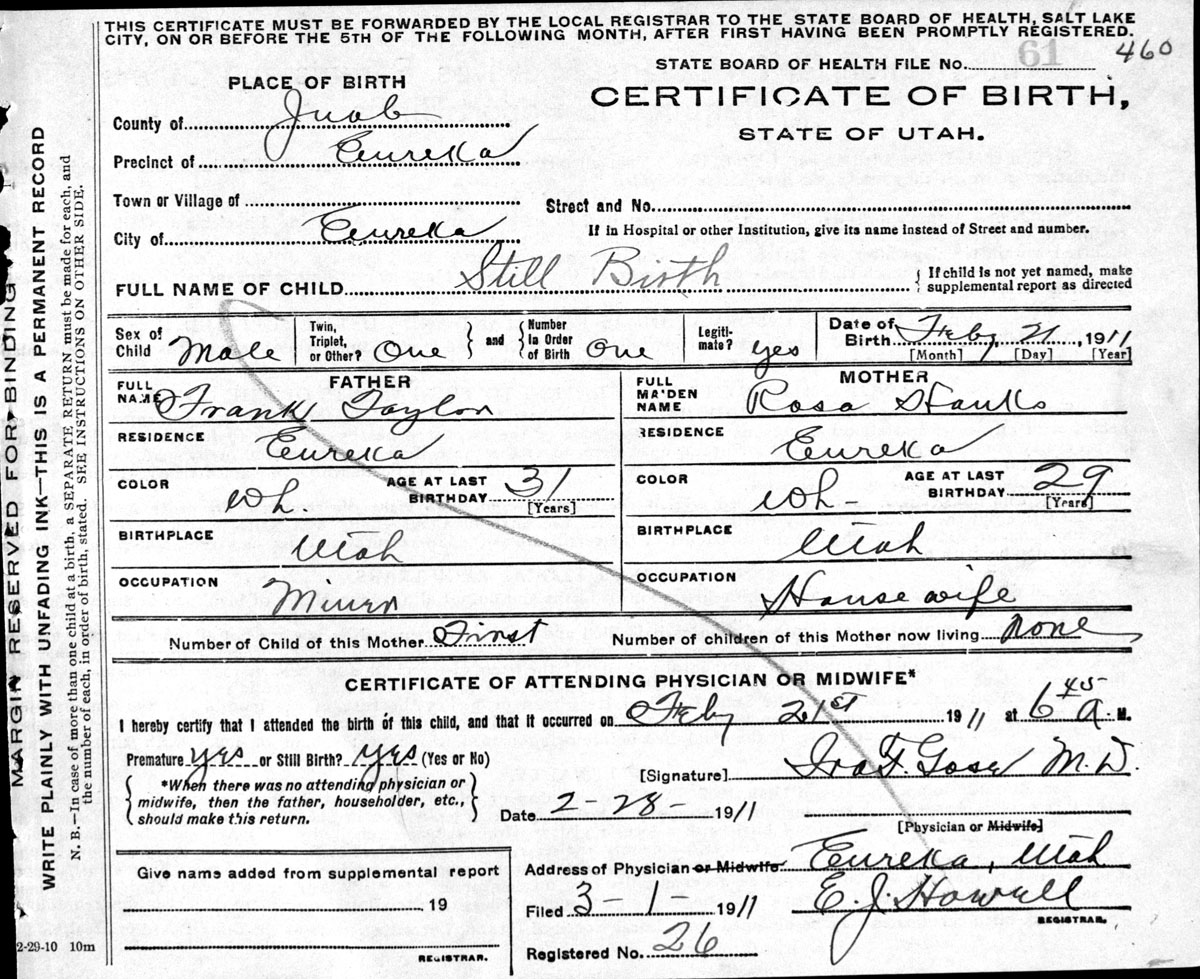 THIS CERTIFICATE MUST BE FORWARDED BY THE LOCAL REGISTRAR TO THE STATE BOARD OF HEALTH, SALT LAKE
CITY, ON OR BEFORE THE 5TH OF THE FOLLOWING MONTH, AFTER FIRST HAVING BEEN PROMPTLY REGISTERED.
460
STATE BOARD OF HEALTH FILE NO. 61
PLACE OF BIRTH
CERTIFICATE OF BIRTH,
STATE OF UTAH.
County of Juab
Precinct of Eureka
Town or Village of
Street and No.
City of Eureka
If in Hospital or other Institution, give its name instead of Street and number.
FULL NAME OF CHILD Still Birth
{ If child is not yet named, make
supplemental report as directed
Sex of Child Male
Twin, Triplet, or Other? One
} and {
Number in Order of Birth One
Legitimate? yes
Date of Birth Feby 21, 1911
[Month] [Day] [Year]
FATHER
FULL NAME Frank Taylor
RESIDENCE Eureka
COLOR wh.
AGE AT LAST BIRTHDAY 31
[Years]
BIRTHPLACE Utah
OCCUPATION Miner
MOTHER
FULL MAIDEN NAME Rosa
RESIDENCE Eureka
COLOR wh-
AGE AT LAST BIRTHDAY 29
[Years]
BIRTHPLACE Utah
OCCUPATION Housewife
Number of Child of this Mother First
Number of children of this Mother now living none
CERTIFICATE OF ATTENDING PHYSICIAN OR MIDWIFE*
I hereby certify that I attended the birth of this child, and that it occurred on Feby 21st 1911 at 6 45 A. M.
Premature yes or Still Birth? yes (Yes or No)
[Signature] Ira F. M.D.
{ *When there was no attending physician or
midwife, then the father, householder, etc.,
should make this return. }
Date 2-28- 1911
[Physician or Midwife]
Address of Physician or Midwife Eureka, Utah
Give name added from supplemental report
19
REGISTRAR.
Filed 3-1- 1911
E. J. Howell
REGISTRAR.
Registered No. 26
2-29-10 10m
MARGIN RESERVED FOR BINDING
WRITE PLAINLY WITH UNFADING INK—THIS IS A PERMANENT RECORD
N. B.—In case of more than one child at a birth, a SEPARATE RETURN must be made for each, and
the number of each, in order of birth, stated. SEE INSTRUCTIONS ON OTHER SIDE.